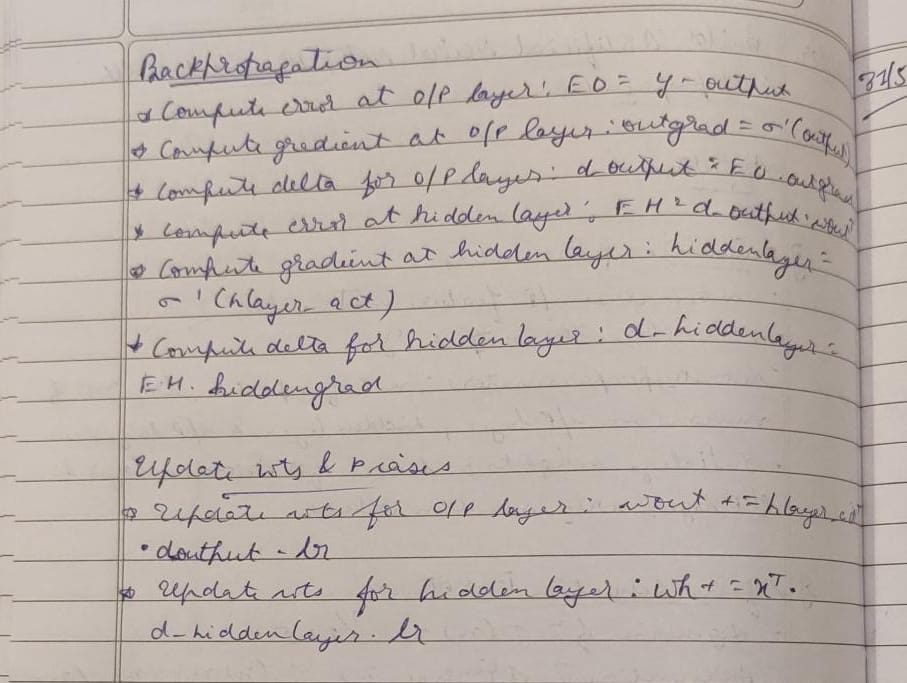 Backpropagation
Compute error at o/p layer: EO = y - output
Compute gradient at o/p layer: outgrad = σ'(output)
Compute delta for o/p layer: d_output = EO.outgrad
Compute error at hidden layer: EH = d_output.wout
Compute gradient at hidden layer: hiddenlayer =
σ'(hlayer_act)
Compute delta for hidden layer: d_hiddenlayer =
EH. hiddengrad
Update wts & biases
Update wts for o/p layer: wout += hlayer_act
• doutput - lr
Update wts for hidden layer: wh + = xᵀ.
d_hiddenlayer. lr